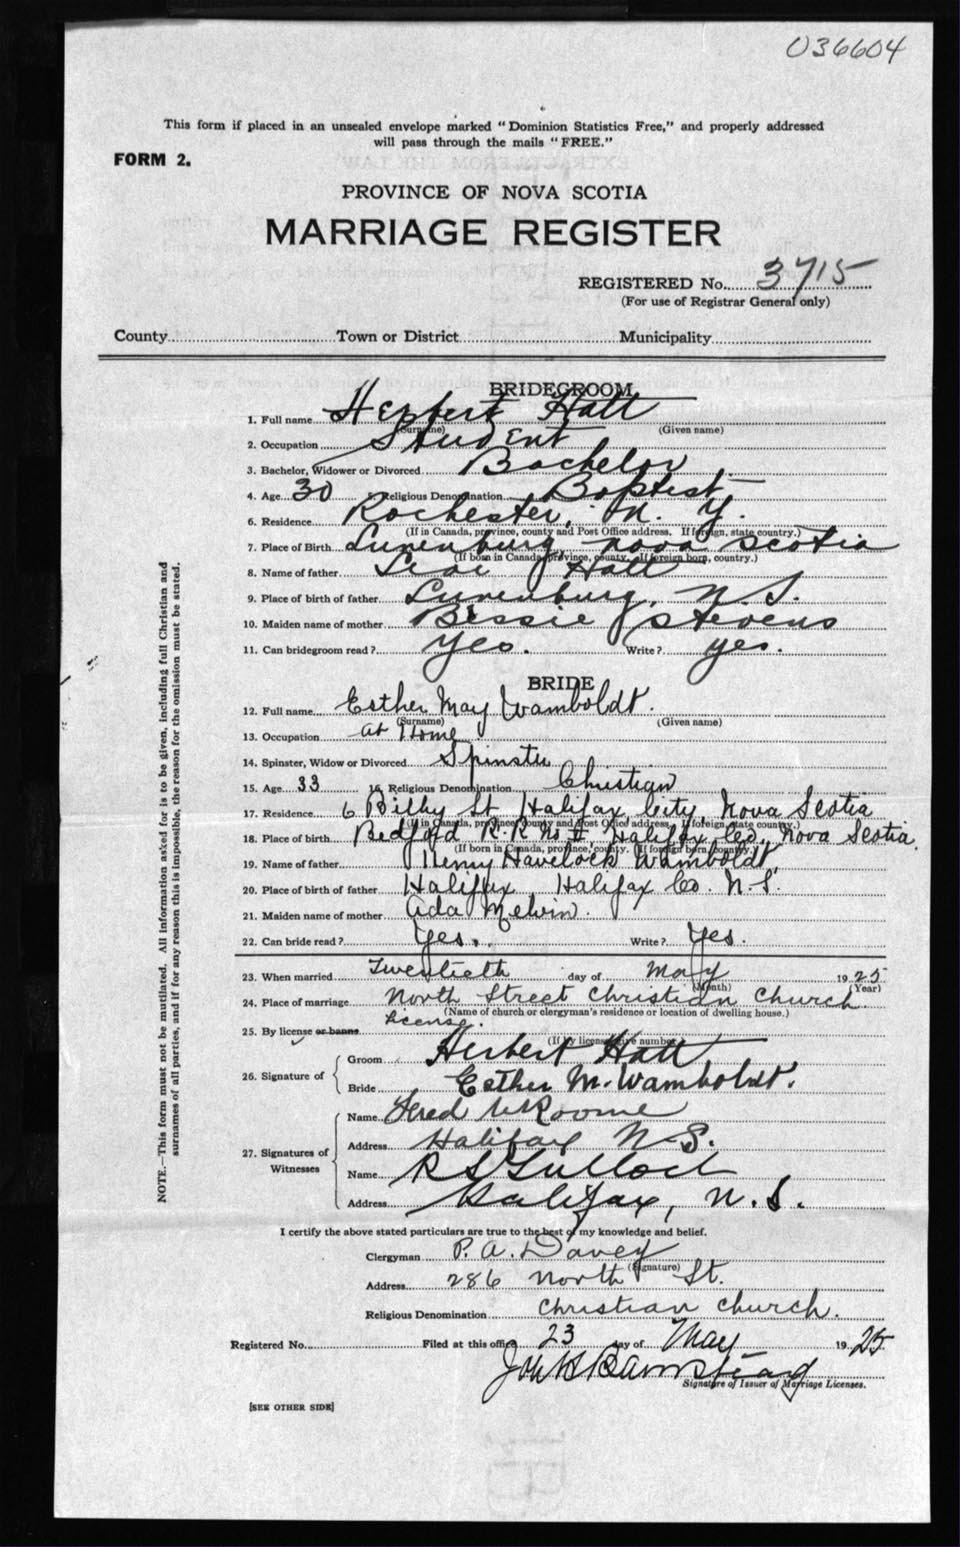 036604
This form if placed in an unsealed envelope marked "Dominion Statistics Free," and properly addressed
will pass through the mails "FREE."
FORM 2.
PROVINCE OF NOVA SCOTIA
MARRIAGE REGISTER
REGISTERED No. 3715
(For use of Registrar General only)
County Town or District Municipality
BRIDEGROOM
1. Full name Herbert Hatt
(Surname) (Given name)
2. Occupation Student
3. Bachelor, Widower or Divorced Bachelor
4. Age 30 5. Religious Denomination Baptist
6. Residence Rochester, N. Y.
(If in Canada, province, county and Post Office address. If foreign, state country.)
7. Place of Birth Lunenburg, Nova Scotia
(If born in Canada, province, county. If foreign born, country.)
8. Name of father Hatt
9. Place of birth of father Lunenburg, N. S.
10. Maiden name of mother Bessie Stevens
11. Can bridegroom read? Yes. Write? yes.
BRIDE
12. Full name Esther May Wamboldt.
(Surname) (Given name)
13. Occupation at Home
14. Spinster, Widow or Divorced Spinster
15. Age 33 16. Religious Denomination Christian
17. Residence 6 Bilby St Halifax City, Nova Scotia
(If in Canada, province, county and Post Office address. If foreign, state country.)
18. Place of birth Bedford R.R. No II, Halifax Co., Nova Scotia.
(If born in Canada, province, county. If foreign born, country.)
19. Name of father Henry Havelock Wamboldt
20. Place of birth of father Halifax, Halifax Co. N.S.
21. Maiden name of mother Ada Melvin.
22. Can bride read? Yes. Write? Yes.
23. When married Twentieth day of May 1925
(Month) (Year)
24. Place of marriage North Street Christian Church
(Name of church or clergyman's residence or location of dwelling house.)
25. By license or banns license.
(If by license give number)
26. Signature of
Groom Herbert Hatt
Bride Esther M. Wamboldt.
27. Signatures of Witnesses
Name
Address Halifax N.S.
Name
Address Halifax, N.S.
I certify the above stated particulars are true to the best of my knowledge and belief.
Clergyman P. A. Davey
(Signature)
Address 286 North St.
Religious Denomination Christian Church.
Registered No. Filed at this office 23 day of May 1925
Signature of Issuer of Marriage Licenses.
[SEE OTHER SIDE]
NOTE.—This form must not be mutilated. All information asked for is to be given, including full Christian and
surnames of all parties, and if for any reason this is impossible, the reason for the omission must be stated.